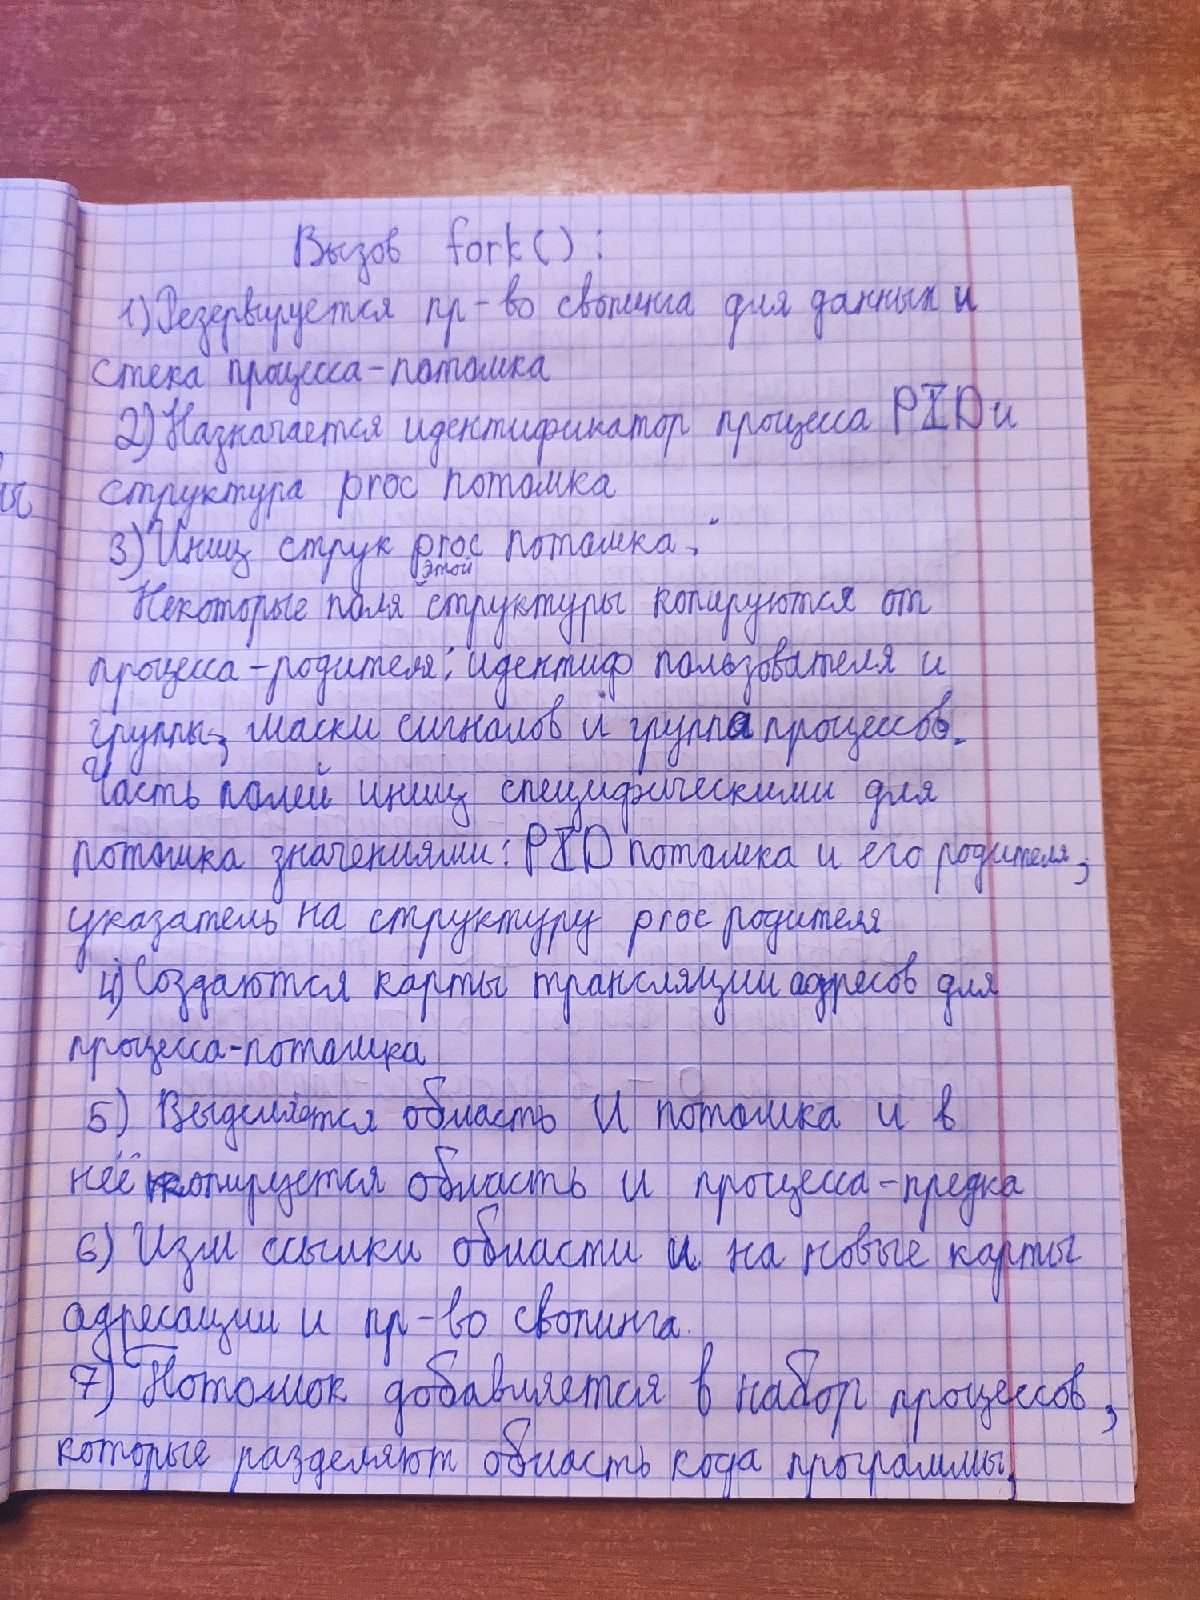 Вызов fork():
1) Резервируется пр-во свопинга для данных и
стека процесса-потомка
2) Назначается идентификатор процесса PID и
структура proc потомка
3) Иниц струк proc потомка:
этой
Некоторые поля структуры копируются от
процесса-родителя: идентиф пользователя и
группы, маски сигналов и группа процессов.
Часть полей иниц специфическими для
потомка значениями: PID потомка и его родителя,
указатель на структуру proc родителя
4) Создаются карты трансляции адресов для
процесса-потомка
5) Выделяется область u потомка и в
неё копируется область u процесса-предка
6) Изм ссылки области u на новые карты
адресации и пр-во свопинга.
7) Потомок добавляется в набор процессов,
которые разделяют область кода программы,